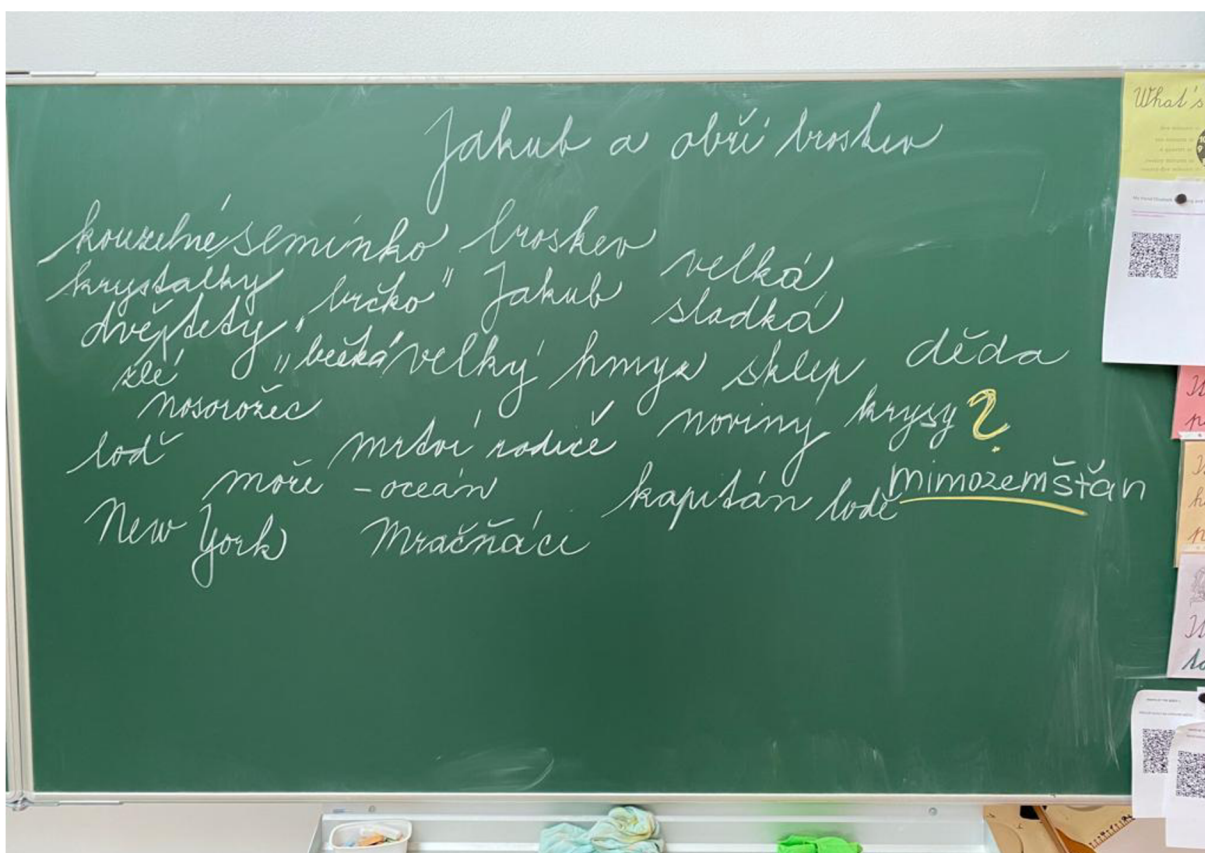 Jakub a obří broskev
kouzelné semínko broskev velká
krystalky "brčko" Jakub sladká
dvě tety "bečka" velký hmyz sklep děda
zlé
nosorožec
loď mrtví rodiče noviny krysy ?
moře - oceán kapitán lodě mimozemšťan
New York Mračňáci
What's